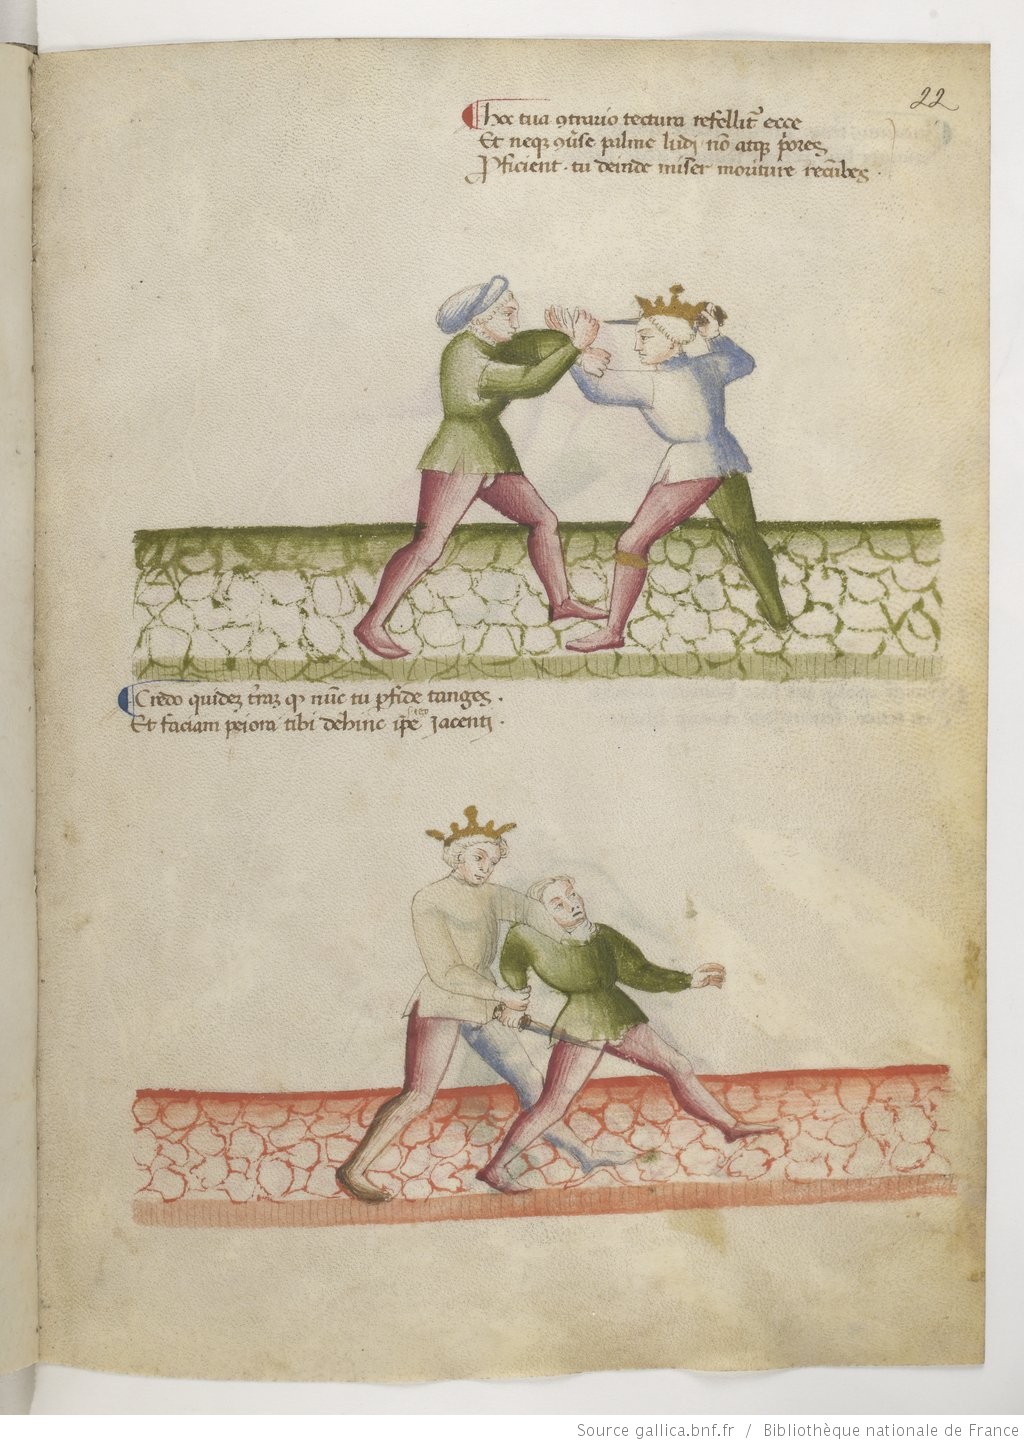 22
hoc tua 9trario tectura refellit᷒ ecce
Et neqꝫ 9u͛se palme ludi nō atqꝫ p̄ores
ꝓficient · tu deinde miser moriture recūbes ·
Credo quideꝫ t͛raꝫ ꝙ nūc tu ꝑfide tanges ·
Et faciam peiora tibi dehinc ip̄e ego Jacenti ·
Source gallica.bnf.fr / Bibliothèque nationale de France